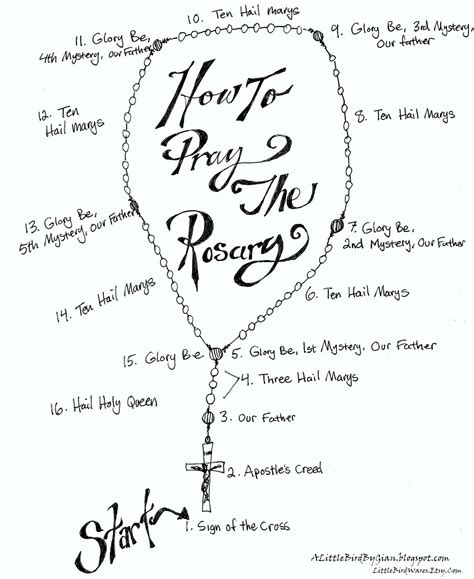 10. Ten Hail marys
11. Glory Be,
4th Mystery, Our Father
9. Glory Be, 3rd Mystery,
Our father
How To
Pray
The
Rosary
12. Ten
Hail marys
8. Ten Hail Marys
13. Glory Be,
5th Mystery, Our Father
7. Glory Be,
2nd Mystery, Our Father
14. Ten Hail Marys
6. Ten Hail Marys
15. Glory Be
5. Glory Be, 1st Mystery, Our Father
4. Three Hail Marys
16. Hail Holy Queen
3. Our Father
2. Apostle's Creed
Start
1. Sign of the Cross
ALittleBirdByGian.blogspot.com
LittleBirdWares.Etsy.Com